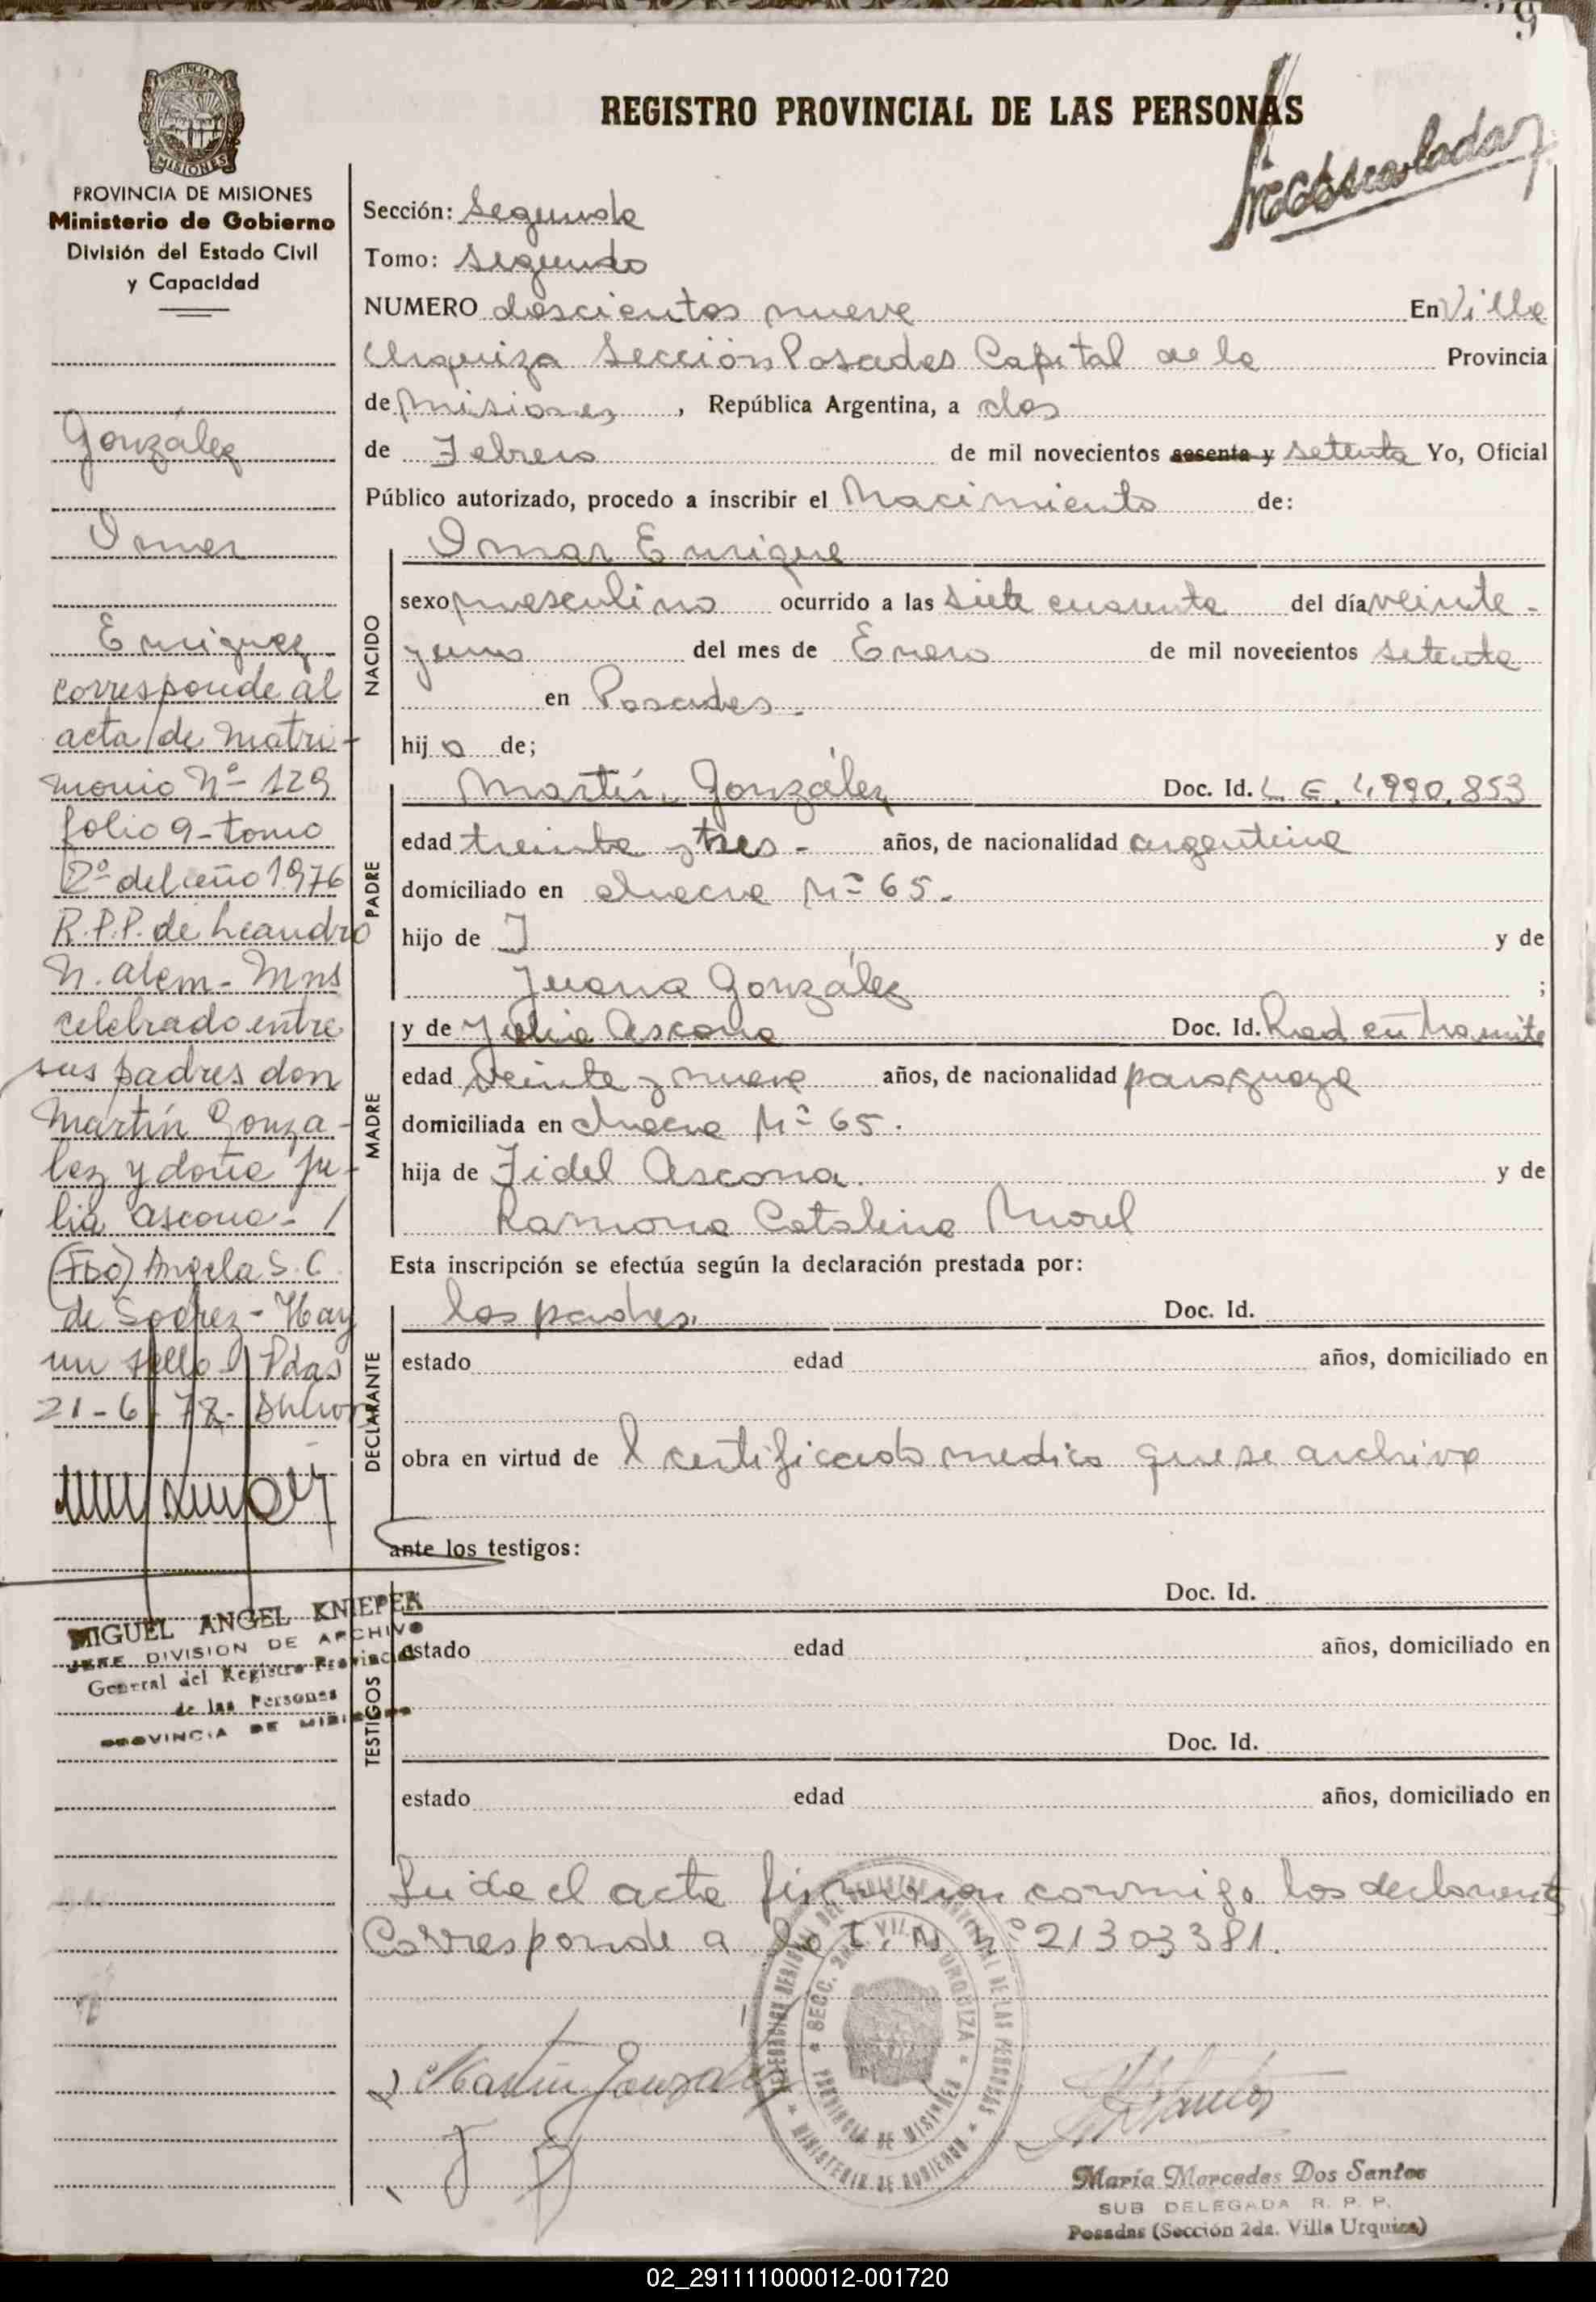 REGISTRO PROVINCIAL DE LAS PERSONAS
MISIONES
PROVINCIA DE MISIONES
Ministerio de Gobierno
División del Estado Civil
y Capacidad
González
Omar
Enrique
corresponde al
acta de matri-
monio Nº 129
folio 9 - tomo
2º del año 1976
R.P.P. de Leandro
N. Alem - Mns
celebrado entre
sus padres don
Martín Gonza-
lez y doña Ju-
lia Ascona - /
(Fdo) Angela S. C.
de - Hay
un sello - Pdas
21-6-78 -
MIGUEL ANGEL KNIEPER
JEFE DIVISION DE ARCHIVO
General del Registro Provincial
de las Personas
PROVINCIA DE MISIONES
Sección: Segunda
Tomo: Segundo
NUMERO doscientos nueve En Villa
Urquiza Sección Posadas Capital de la Provincia
de Misiones, República Argentina, a dos
de Febrero de mil novecientos sesenta y setenta Yo, Oficial
Público autorizado, procedo a inscribir el Nacimiento de:
NACIDO
Omar Enrique
sexo masculino ocurrido a las siete cuarenta del día veinte-
yuno del mes de Enero de mil novecientos setenta
en Posadas -
hij o de;
PADRE
Martín González Doc. Id. L E. 4,990,853
edad treinta y tres - años, de nacionalidad argentina
domiciliado en chacra Nº 65.
hijo de y de
Juana González ;
MADRE
y de Julia Ascona Doc. Id. Rad en tramite
edad veinte y nueve años, de nacionalidad paraguaya
domiciliada en chacra Nº 65.
hija de Fidel Ascona. y de
Ramona Catalina Morel
Esta inscripción se efectúa según la declaración prestada por:
DECLARANTE
los padres. Doc. Id.
estado edad años, domiciliado en
obra en virtud de l certificado medico que se archiva
ante los testigos:
TESTIGOS
Doc. Id.
estado edad años, domiciliado en
Doc. Id.
estado edad años, domiciliado en
Leida el acta firmaron conmigo los declarantes
Corresponde a la T. M Nº 21303381.
Martin Gonzalez
María Mercedes Dos Santos
SUB DELEGADA R. P. P.
Posadas (Sección 2da. Villa Urquiza)
02_291111000012-001720